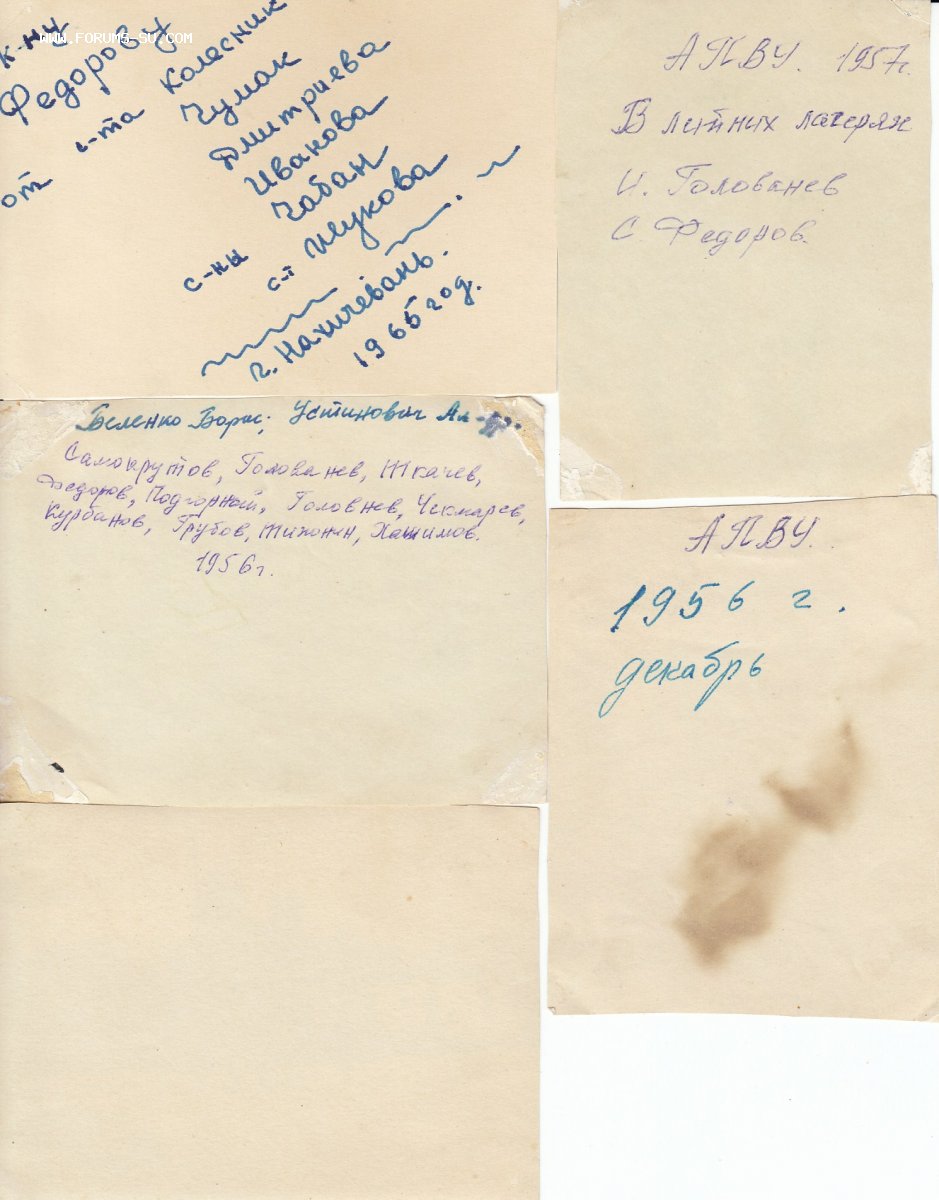 WWW.FORUMS-SU.COM
к-ну
Федорову
от с-та Колесник
Чумак
Дмитриева
Иванова
Чабан
с-ны
с-т Жукова
г. Нахичевань.
1965 год.
АПВУ. 1957г.
В литних лагерях
И.Голованев
С. Федоров.
Беленко Борис; Устинович Ал-др.
Самокрутов, Голованев, Ткачев,
Федоров, Подгорный, Головнев, Чекмарев,
Курбанов, Грубов, Тихонин, Хашимов.
1956г.
АПВУ.
1956 г.
декабрь